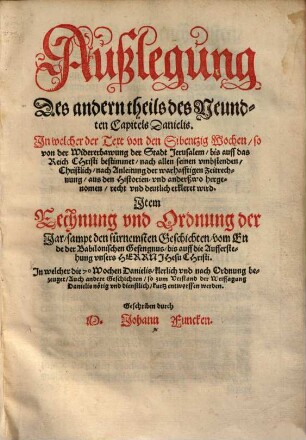 Außlegung
Des andern theils des Neund-
ten Capitels Danielis.
In welcher der Text von den Sibentzig Wochen / so
von der Widererbawung der Stadt Jerusalem / bis auff das
Reich CHristi bestimmet / nach allen seinen vmbstenden /
Christlich / nach Anleitung der warhafftigen Zeitrech-
nung / aus den Historien vnd anderßwo herge-
nomen / recht vnd deutlich erkleret wird.
Item
Rechnung vnd Ordnung der
Jar / sampt den fürnemsten Geschichten / vom En
de der Babilonischen Gefengnus / bis auff die Aufferste-
hung vnsers HERRN JHesu CHristi.
In welcher die 70 Wochen Danielis / klerlich vnd nach Ordnung be-
zeuget / Auch andere Geschichten / so zum Verstand der Weissagung
Danielis nötig vnd dienstlich / kurtz entworffen werden.
Geschriben durch
M. Johann Funcken.